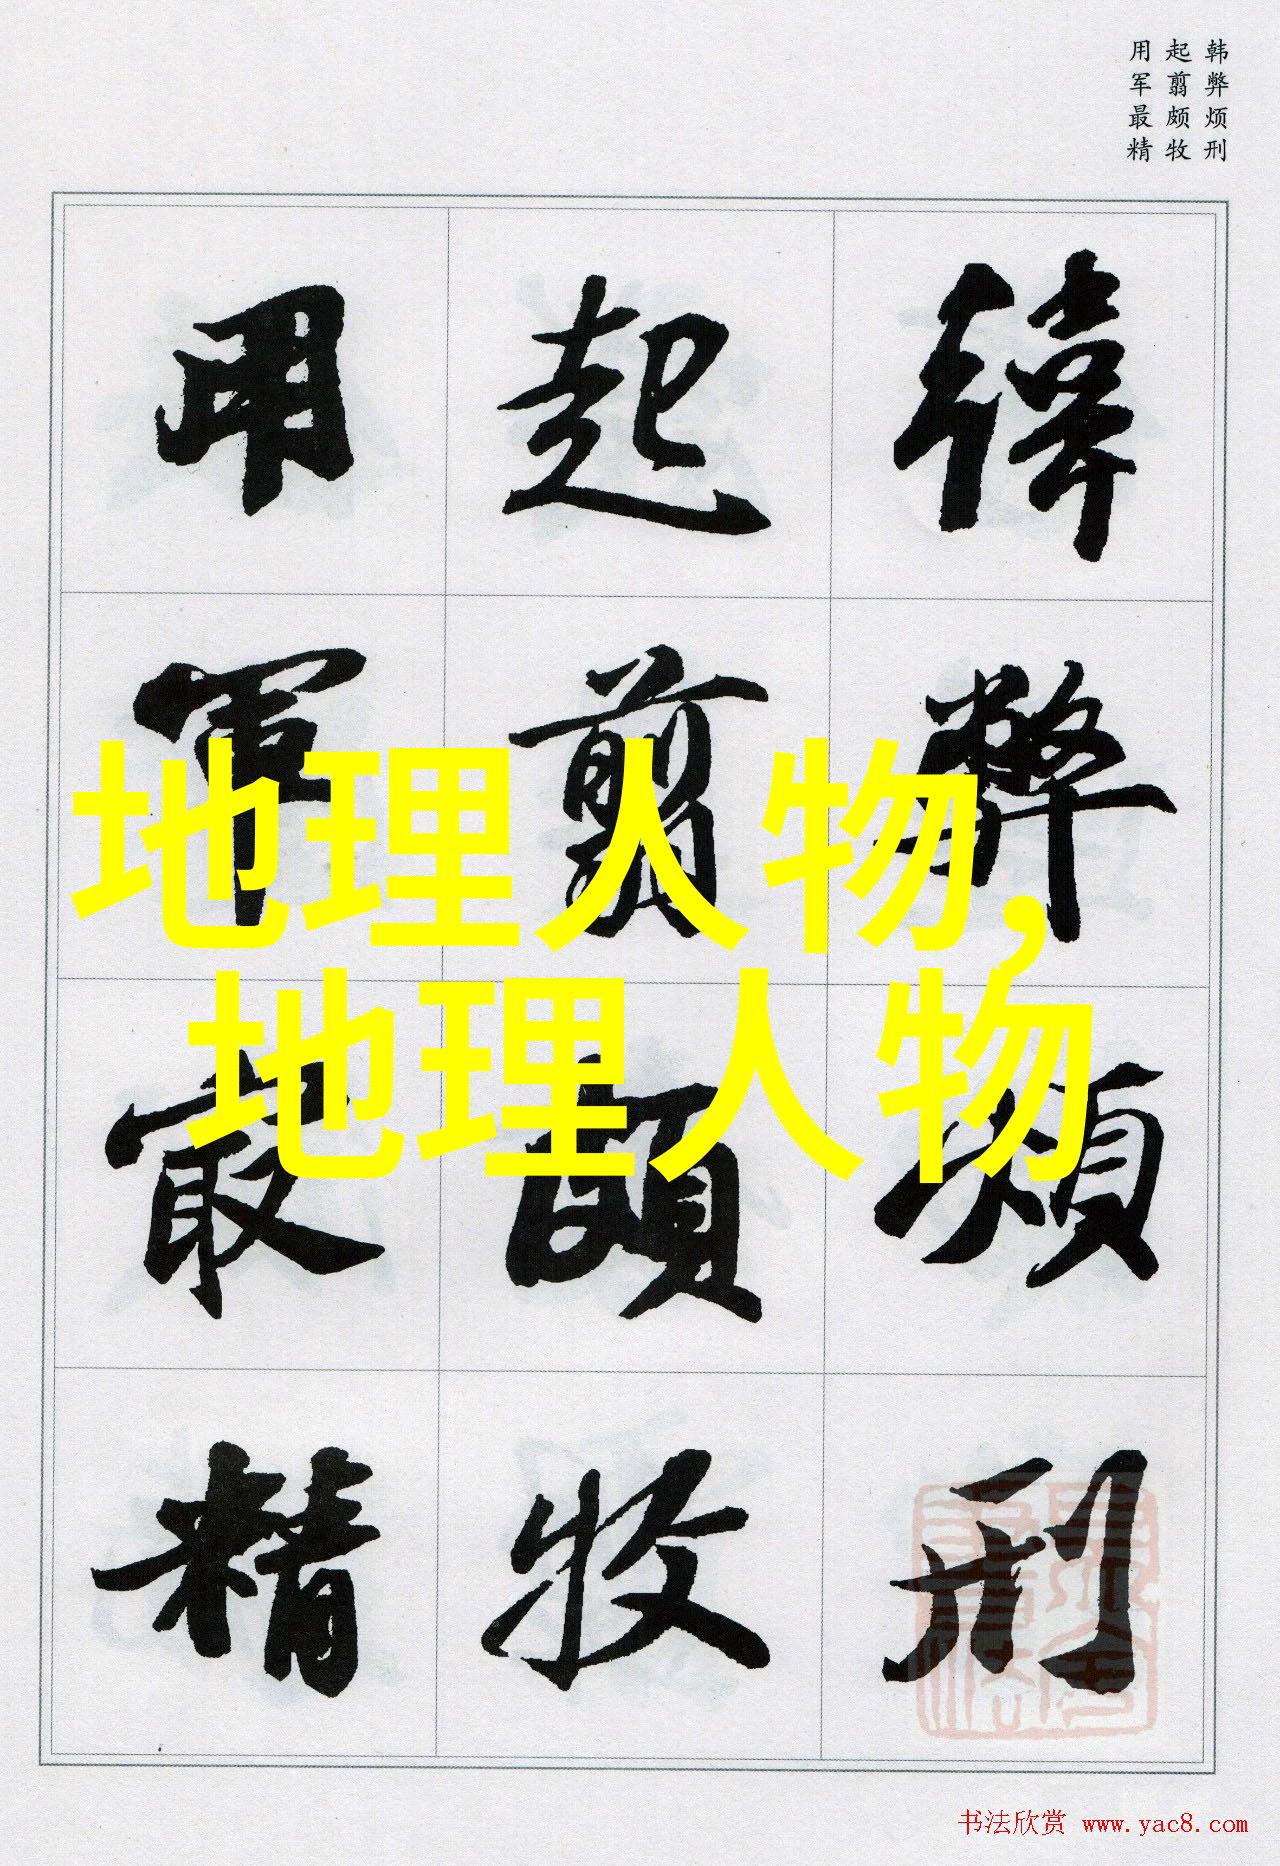 韩弊烦刑
起翦颇牧
用军最精
韓弊煩刑
起翦頗牧
用軍最精
地理人物,
地理人物
书法欣赏 www.yac8.com